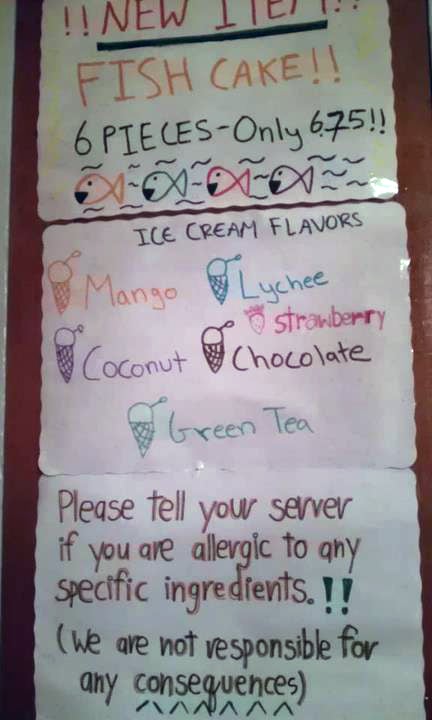 !! NEW ITEM!!
FISH CAKE!!
6 PIECES-Only 6.75!!
ICE CREAM FLAVORS
Mango Lychee
strawberry
Coconut Chocolate
Green Tea
Please tell your server
if you are allergic to any
specific ingredients.!!
(we are not responsible for
any consequences)